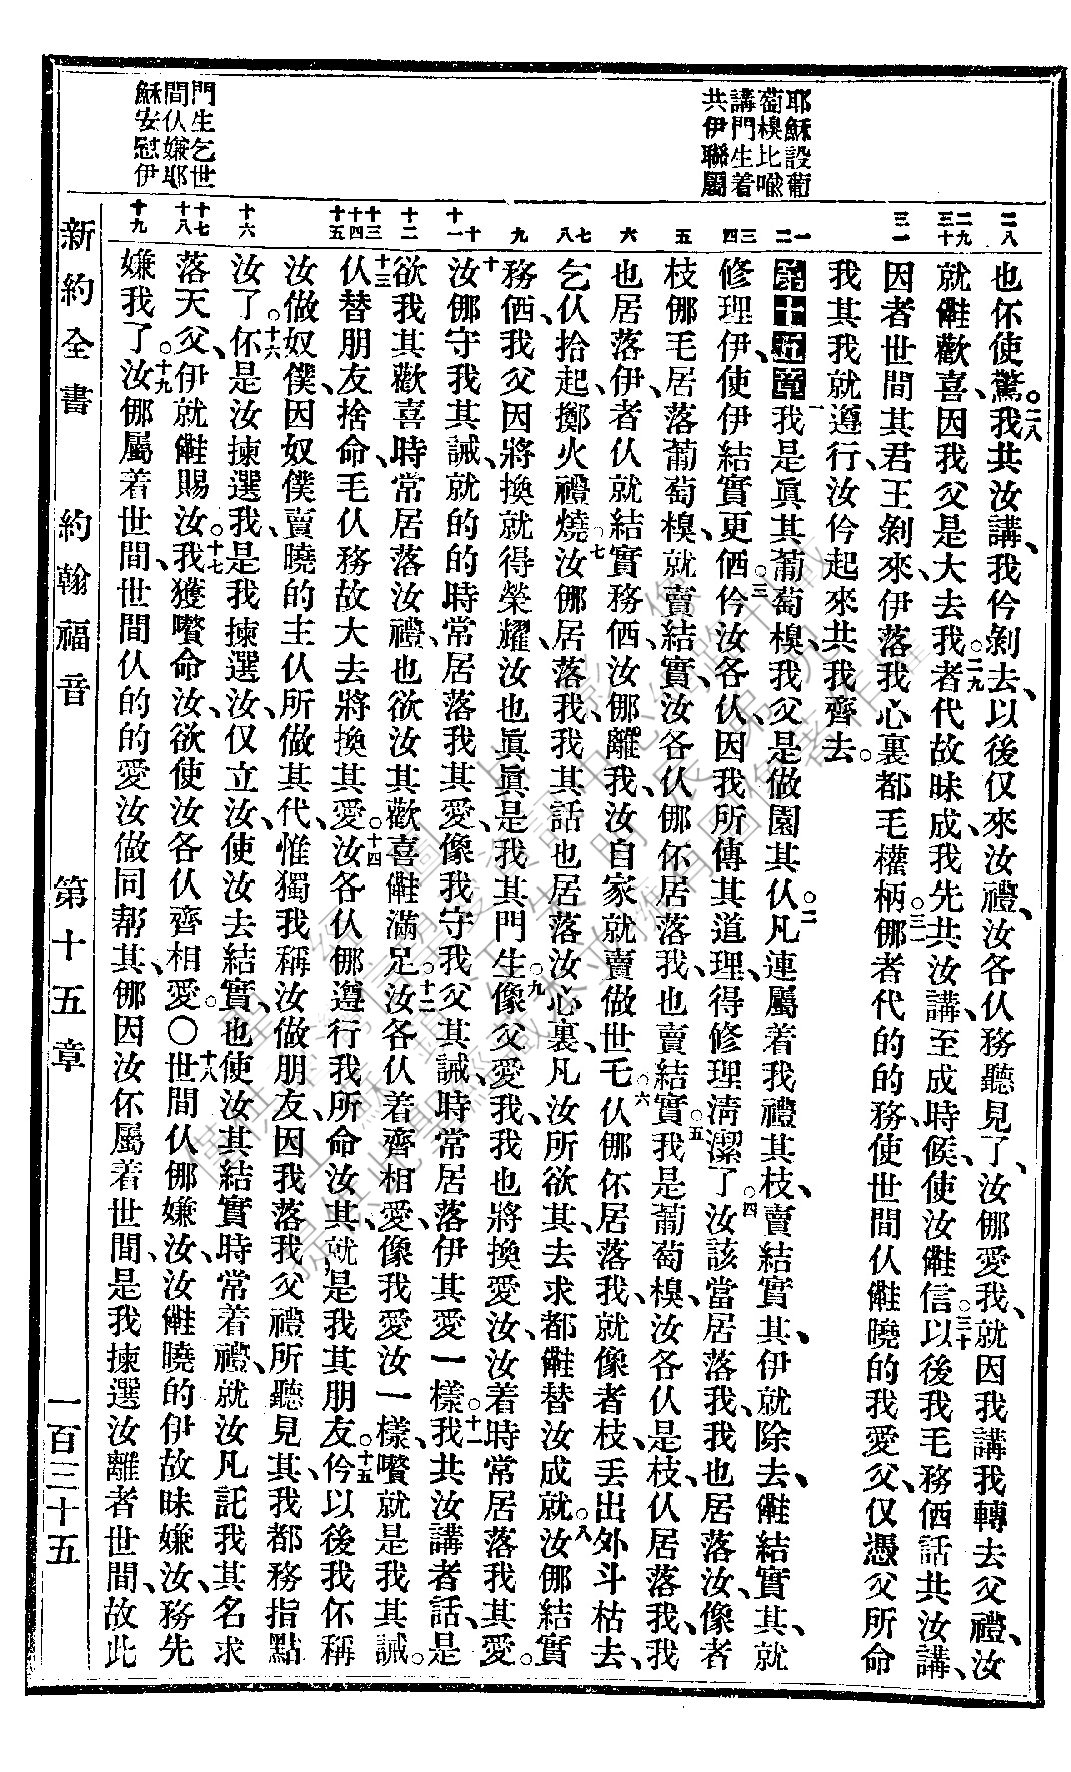 耶穌設葡
萄樹比喩
講門生着
共伊聯屬
門生乞世
間仈嫌耶
穌安慰伊
二八
二九
三十
三一
一
二
三
四
五
六
七
八
九
十
十一
十二
十三
十四
十五
十六
十七
十八
十九
也伓使驚。二八我共汝講、我仱剝去、以後仅來汝禮、汝各仈務聽見了、汝㑚愛我、就因我講我轉去父禮、汝
就𠆧歡喜、因我父是大去我。二九者代故昧成、我先共汝講、至成時候、使汝𠆧信。三十以後我毛務価話共汝講、
因者世間其君王剝來、伊落我心裏都毛權柄。三一㑚者代的的務使世間仈𠆧曉的我愛父、仅憑父所命
我其我就遵行、汝仱起來共我齊去。
第十五章 一我是眞其葡萄樹、我父是做園其仈。二凡連屬着我禮其枝、賣結實其、伊就除去、𠆧結實其、就
修理伊、使伊結實更価。三仱汝各仈、因我所傳其道理、得修理淸潔了。四汝該當居落我、我也居落汝、像者
枝㑚毛居落葡萄樹、就賣結實、汝各仈㑚伓居落我、也賣結實。五我是葡萄樹、汝各仈是枝、仈居落我、我
也居落伊、者仈就結實務価、汝㑚離我、汝自家就賣做世毛。六仈㑚伓居落我、就像者枝、丢出外斗枯去、
乞仈拾起、擲火禮燒。七汝㑚居落我、我其話也居落汝心裏、凡汝所欲其、去求都𠆧替汝成就。八汝㑚結實
務価、我父因將換就得榮耀、汝也眞眞是我其門生。九像父愛我、我也將換愛汝、汝着時常居落我其愛。
十汝㑚守我其誡、就的的時常居落我其愛、像我守我父其誡、時常居落伊其愛一樣。十一我共汝講者話、是
欲我其歡喜時常居落汝禮、也欲汝其歡喜𠆧滿足。十二汝各仈着齊相愛、像我愛汝一樣、嚽就是我其誡。
十三仈替朋友捨命、毛仈務故大去將換其愛。十四汝各仈㑚遵行我所命汝其、就是我其朋友。十五仱以後我伓稱
汝做奴僕、因奴僕賣曉的主仈所做其代、惟獨我稱汝做朋友、因我落我父禮所聽見其、我都務指點
汝了。十六伓是汝揀選我、是我揀選汝、仅立汝、使汝去結實、也使汝其結實時常着禮、就汝凡託我其名求
落天父、伊就𠆧賜汝。十七我獲嚽命汝、欲使汝各仈齊相愛。〇十八世間仈㑚嫌汝、汝𠆧曉的伊故昧嫌汝、務先
嫌我了。十九汝㑚屬着世間、世間仈的的愛汝做同幫其、㑚因汝伓屬着世間、是我揀選汝離者世間、故此
新約全書 約翰福音 第十五章 一百三十五